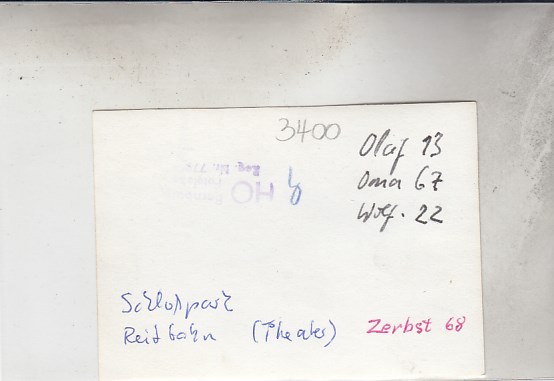 3400
Olaf 13
Oma 67
Wolf. 22
HO
Reg. Nr.
Schloßpark
Reitbahn (Theater)
Zerbst 68